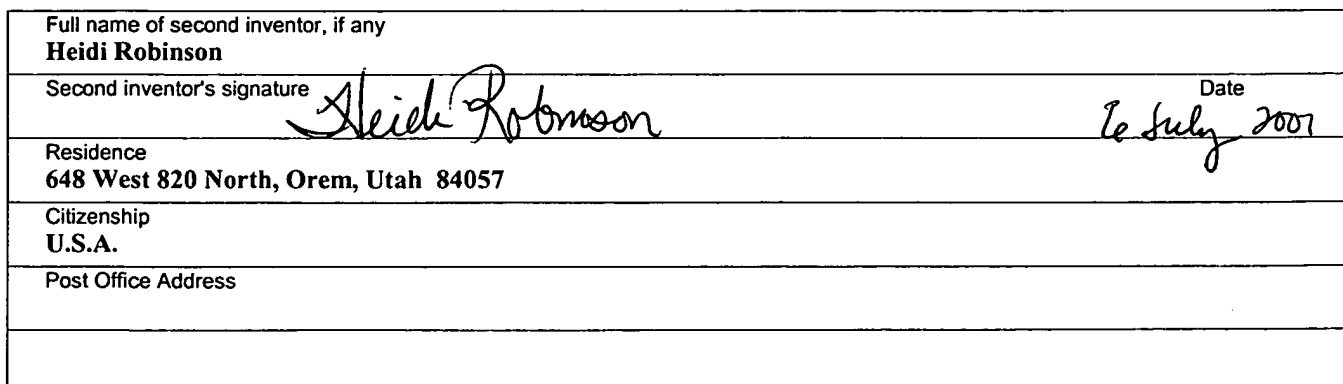 Full name of second inventor, if any
Heidi Robinson
Second inventor's signature Heidi Robinson Date
6 July 2001
Residence
648 West 820 North, Orem, Utah 84057
Citizenship
U.S.A.
Post Office Address